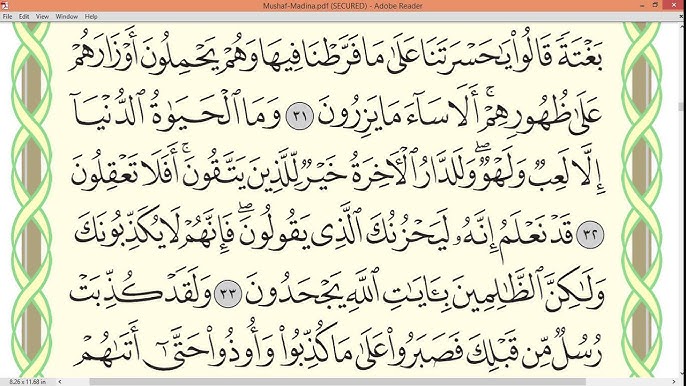 Mushaf-Madina.pdf (SECURED) - Adobe Reader
File Edit View Window Help
بَغْتَةً قَالُوا۟ يَـٰحَسْرَتَنَا عَلَىٰ مَا فَرَّطْنَا فِيهَا وَهُمْ يَحْمِلُونَ أَوْزَارَهُمْ
عَلَىٰ ظُهُورِهِمْ ۚ أَلَا سَآءَ مَا يَزِرُونَ ٣١ وَمَا ٱلْحَيَوٰةُ ٱلدُّنْيَآ
إِلَّا لَعِبٌ وَلَهْوٌ ۖ وَلَلدَّارُ ٱلْـَٔاخِرَةُ خَيْرٌ لِّلَّذِينَ يَتَّقُونَ ۗ أَفَلَا تَعْقِلُونَ
٣٢ قَدْ نَعْلَمُ إِنَّهُۥ لَيَحْزُنُكَ ٱلَّذِى يَقُولُونَ ۖ فَإِنَّهُمْ لَا يُكَذِّبُونَكَ
وَلَـٰكِنَّ ٱلظَّـٰلِمِينَ بِـَٔايَـٰتِ ٱللَّهِ يَجْحَدُونَ ٣٣ وَلَقَدْ كُذِّبَتْ
رُسُلٌ مِّن قَبْلِكَ فَصَبَرُوا۟ عَلَىٰ مَا كُذِّبُوا۟ وَأُوذُوا۟ حَتَّىٰٓ أَتَىٰهُمْ
8.26 x 11.68 in